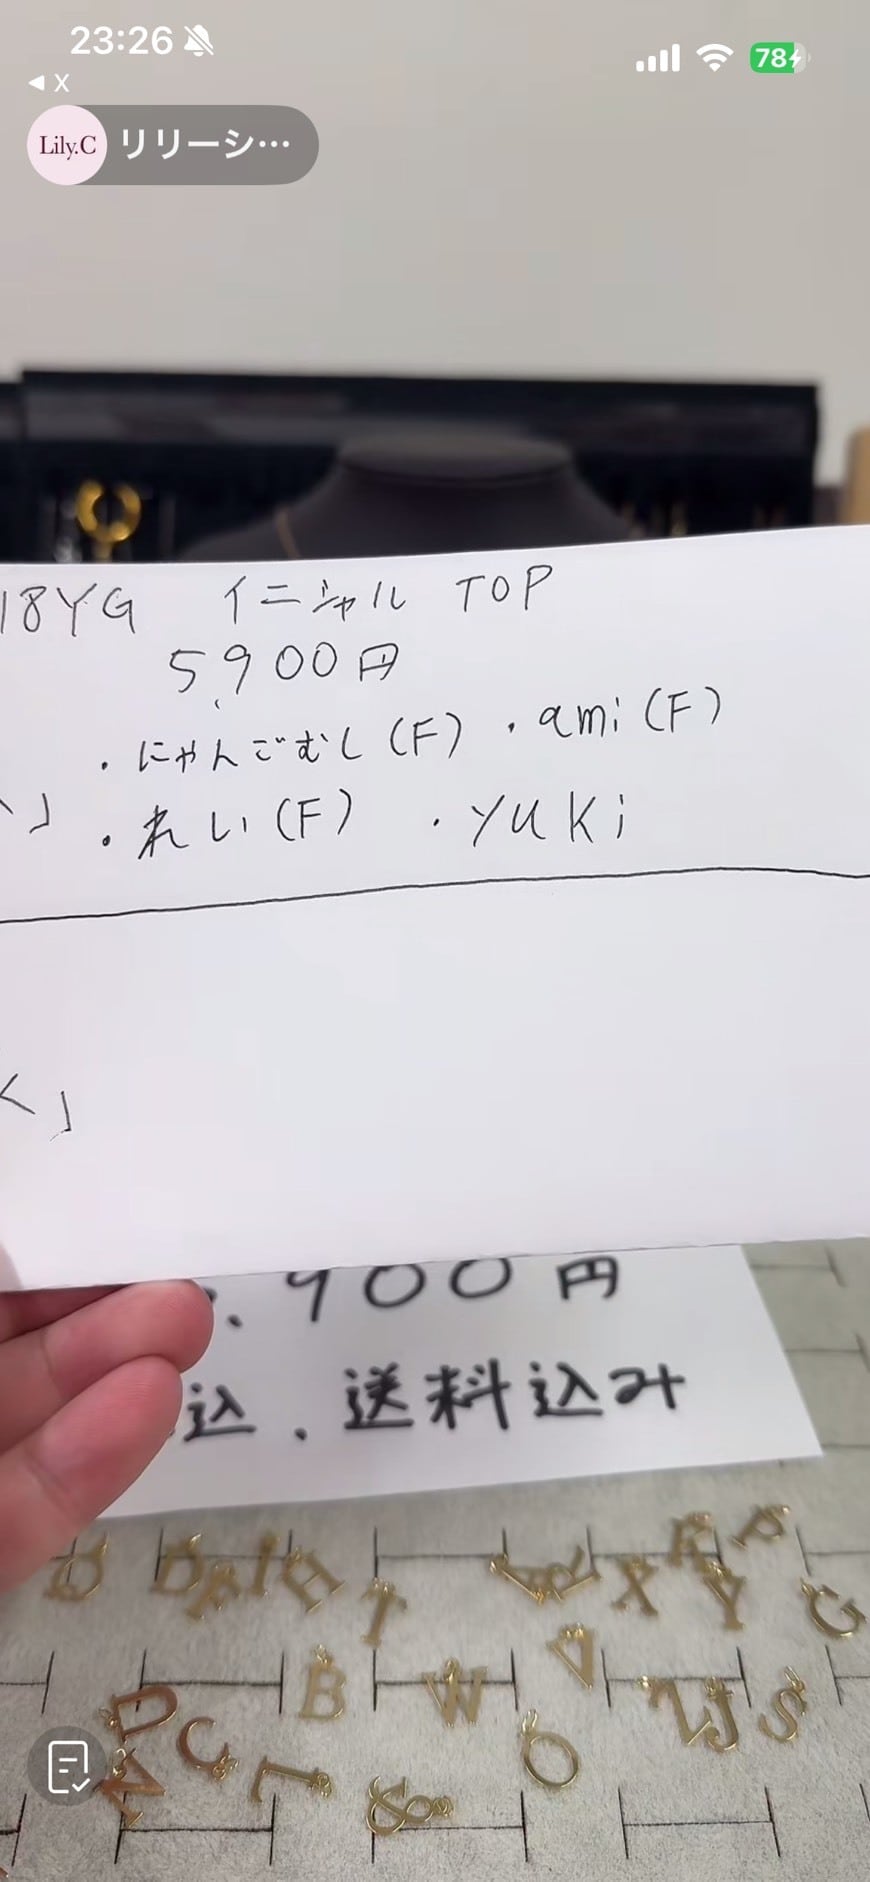 23:26
78
X
Lily.C リリーシ…
18YG イニシャル TOP
5,900円
・にゃんごむし(F) ・ami(F)
」 ・れい(F) ・yuki
く」
,900円
込、送料込み
D H T X Y P G
B W V J S
D C O &
N